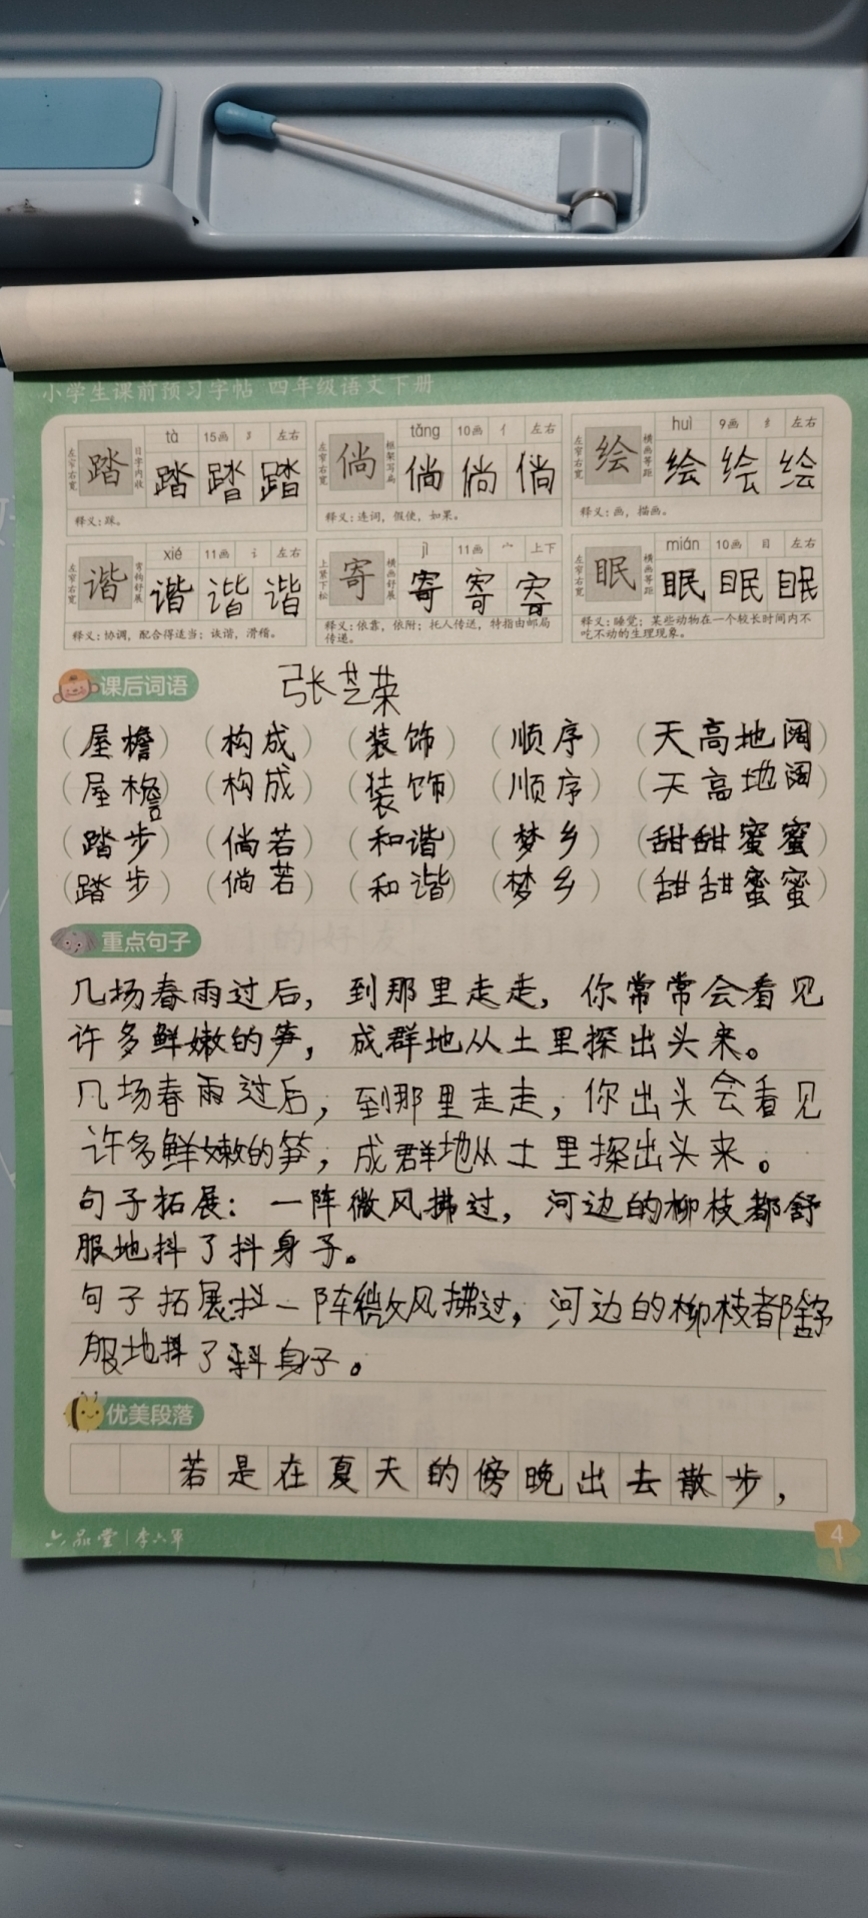 小学生课前预习字帖 四年级语文下册
tà 15画 左右
左窄右宽 踏 日字内收 踏 踏 踏
释义：踩。
tǎng 10画 亻 左右
左窄右宽 倘 框架写扁 倘 倘 倘
释义：连词，假使，如果。
huì 9画 纟 左右
左窄右宽 绘 横画等距 绘 绘 绘
释义：画，描画。
xié 11画 讠 左右
左窄右宽 谐 弯钩舒展 谐 谐 谐
释义：协调，配合得适当；诙谐，滑稽。
jì 11画 宀 上下
上紧下松 寄 横画舒展 寄 寄 寄
释义：依靠，依附；托人传送，特指由邮局
传递。
mián 10画 目 左右
左窄右宽 眠 横画等距 眠 眠 眠
释义：睡觉；某些动物在一个较长时间内不
吃不动的生理现象。
课后词语 张芝荣
（屋檐）（构成）（装饰）（顺序）（天高地阔）
（屋檐）（构成）（装饰）（顺序）（天高地阔）
（踏步）（倘若）（和谐）（梦乡）（甜甜蜜蜜）
（踏步）（倘若）（和谐）（梦乡）（甜甜蜜蜜）
重点句子
几场春雨过后，到那里走走，你常常会看见
许多鲜嫩的笋，成群地从土里探出头来。
几场春雨过后，到那里走走，你出头会看见
许多鲜嫩的笋，成群地从土里探出头来。
句子拓展：一阵微风拂过，河边的柳枝都舒
服地抖了抖身子。
句子拓展抖一阵微风拂过，河边的柳枝都舒
服地抖了抖身子。
优美段落
若是在夏天的傍晚出去散步，
六品堂 | 李六军
4